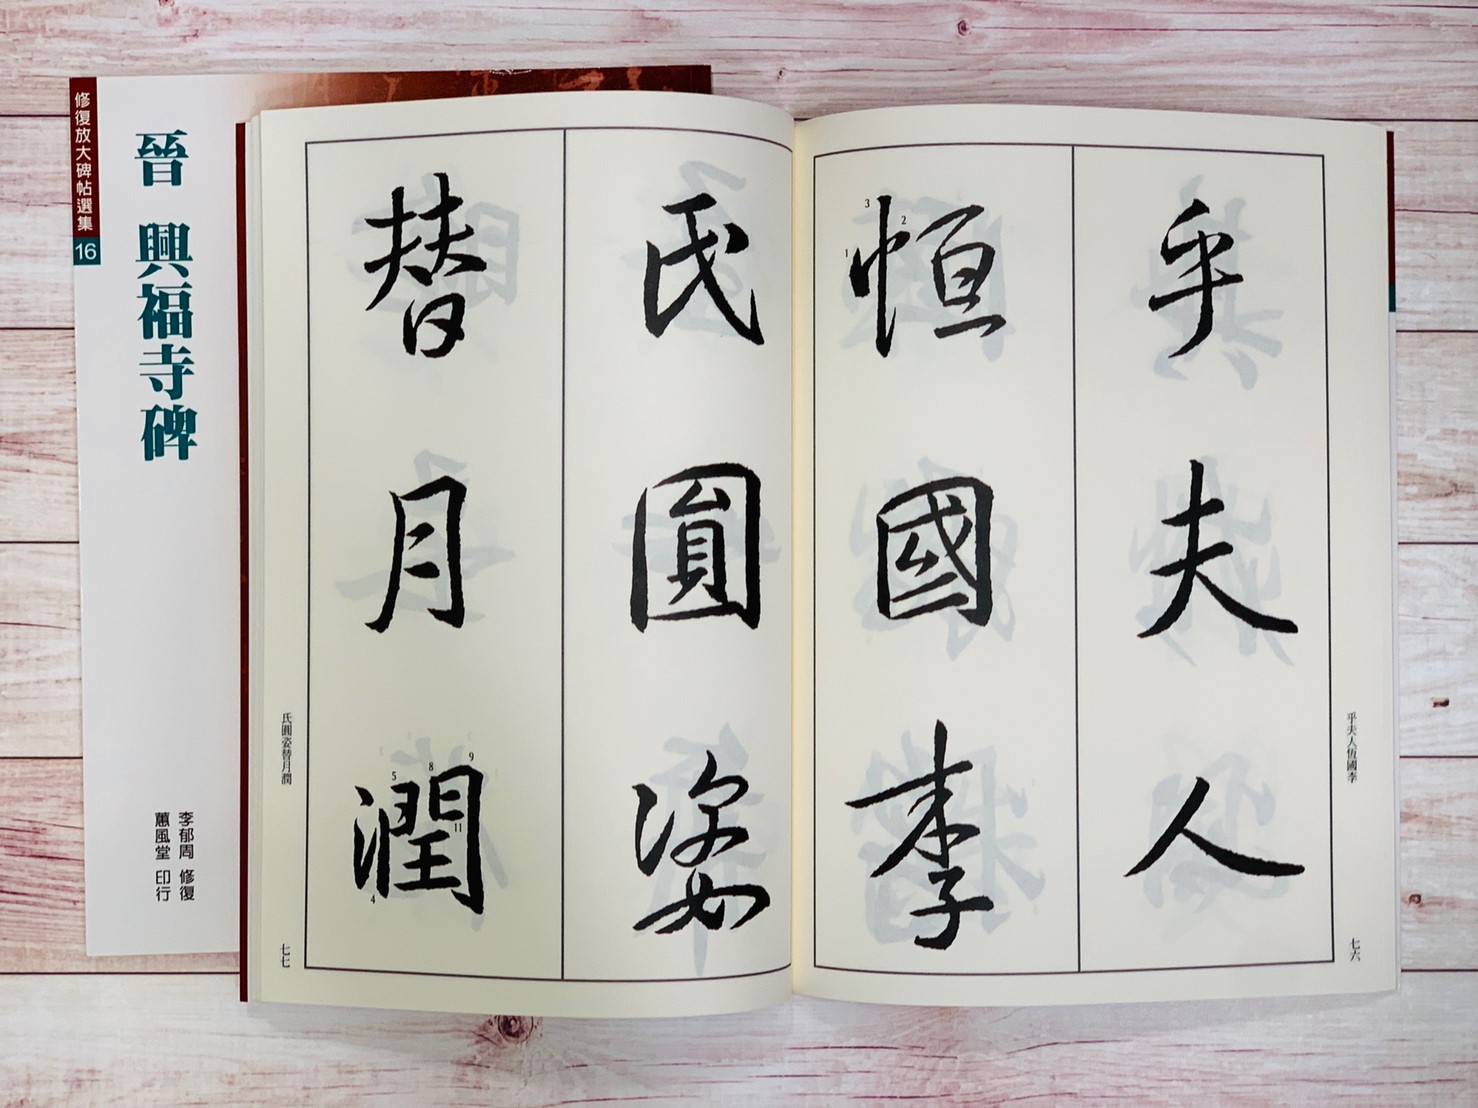 修復放大碑帖選集
16
晉 興福寺碑
李郁周 修復
蕙風堂 印行
乎夫人
恒國李
3
2
1
乎夫人恆國李
七六
氏圓姿
替月潤
5
8
9
11
4
氏圓姿替月潤
七七